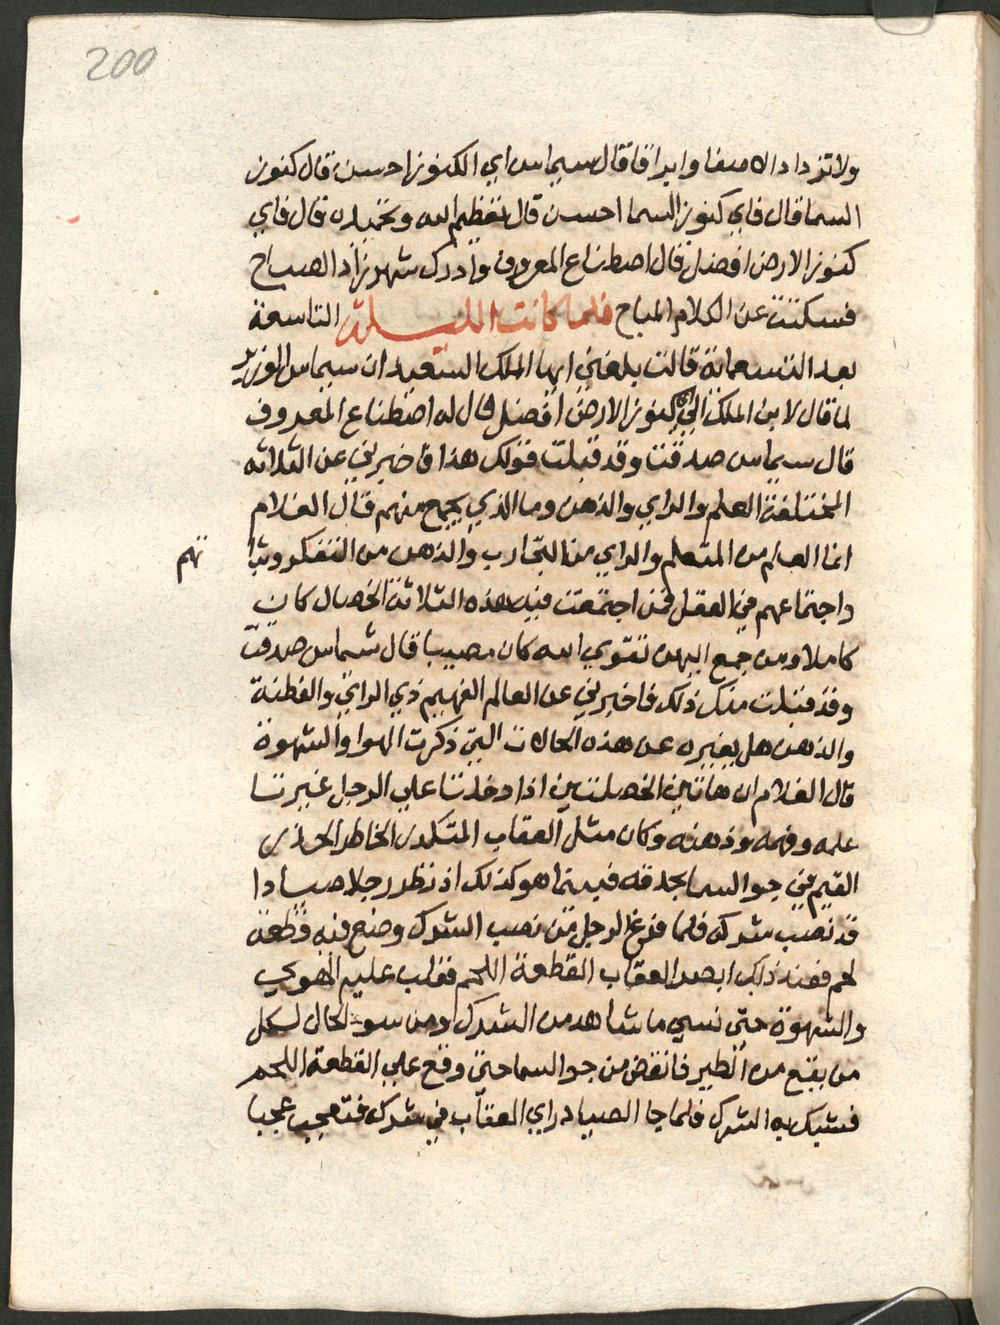 200
ولا تزداد الا صفا وابراقا قال سيماس اي الكنوز احسن قال كنوز
السما قال فاي كنوز السما احسن قال تعظيم الله وتحميده قال فاي
كنوز الارض افضل قال اصطناع المعروف وادرك شهرزاد الصباح
فسكتت عن الكلام المباح فلما كانت الليلة التاسعة
بعد التسعماية قالت بلغني ايها الملك السعيد ان سيماس الوزير
لما قال لابن الملك اي كنوز الارض افضل قال له اصطناع المعروف
قال سيماس صدقت وقد قبلت قولك هذا فاخبرني عن الثلاثه
المختلفة العلم والراي والذهن وما الذي يجمع منهم قال الغلام
انما العلم من المتعلم والراي من التجارب والذهن من التفكر وثبا
تهم
واجتماعهم في العقل فمن اجتمعت فيه هذه الثلاثة الخصال كان
كاملا ومن جمع اليهن تقوي الله كان مصيبا قال شماس صدقت
وقد قبلت منك ذلك فاخبرني عن العالم الفهيم ذي الراي والفطنة
والذهن هل يغيره عن هذه الحالات التي ذكرت الهوا والشهوة
قال الغلام ان هاتين الخصلتين اذا دخلتا علي الرجل غيرتا
علمه وفهمه وذهنه وكان مثل العقاب المتكدر الخاطر الحذر
القيم في جو السما بحدقه فبينما هو كذلك اذ نظر رجلا صيادا
قد نصب شركه فلما فرغ الرجل من نصب الشرك وضع فيه قطعة
لحم فعند ذلك ابصر العقاب القطعة اللحم فغلب عليه الهوي
والشهوة حتي نسي ما شاهد من الشرك ومن سو الحال لكل
من يقع من الطير فانقض من جو السما حتي وقع علي القطعة اللحم
فشبك به الشرك فلما جا الصياد راي العقاب في شركه فتعجب عجبا